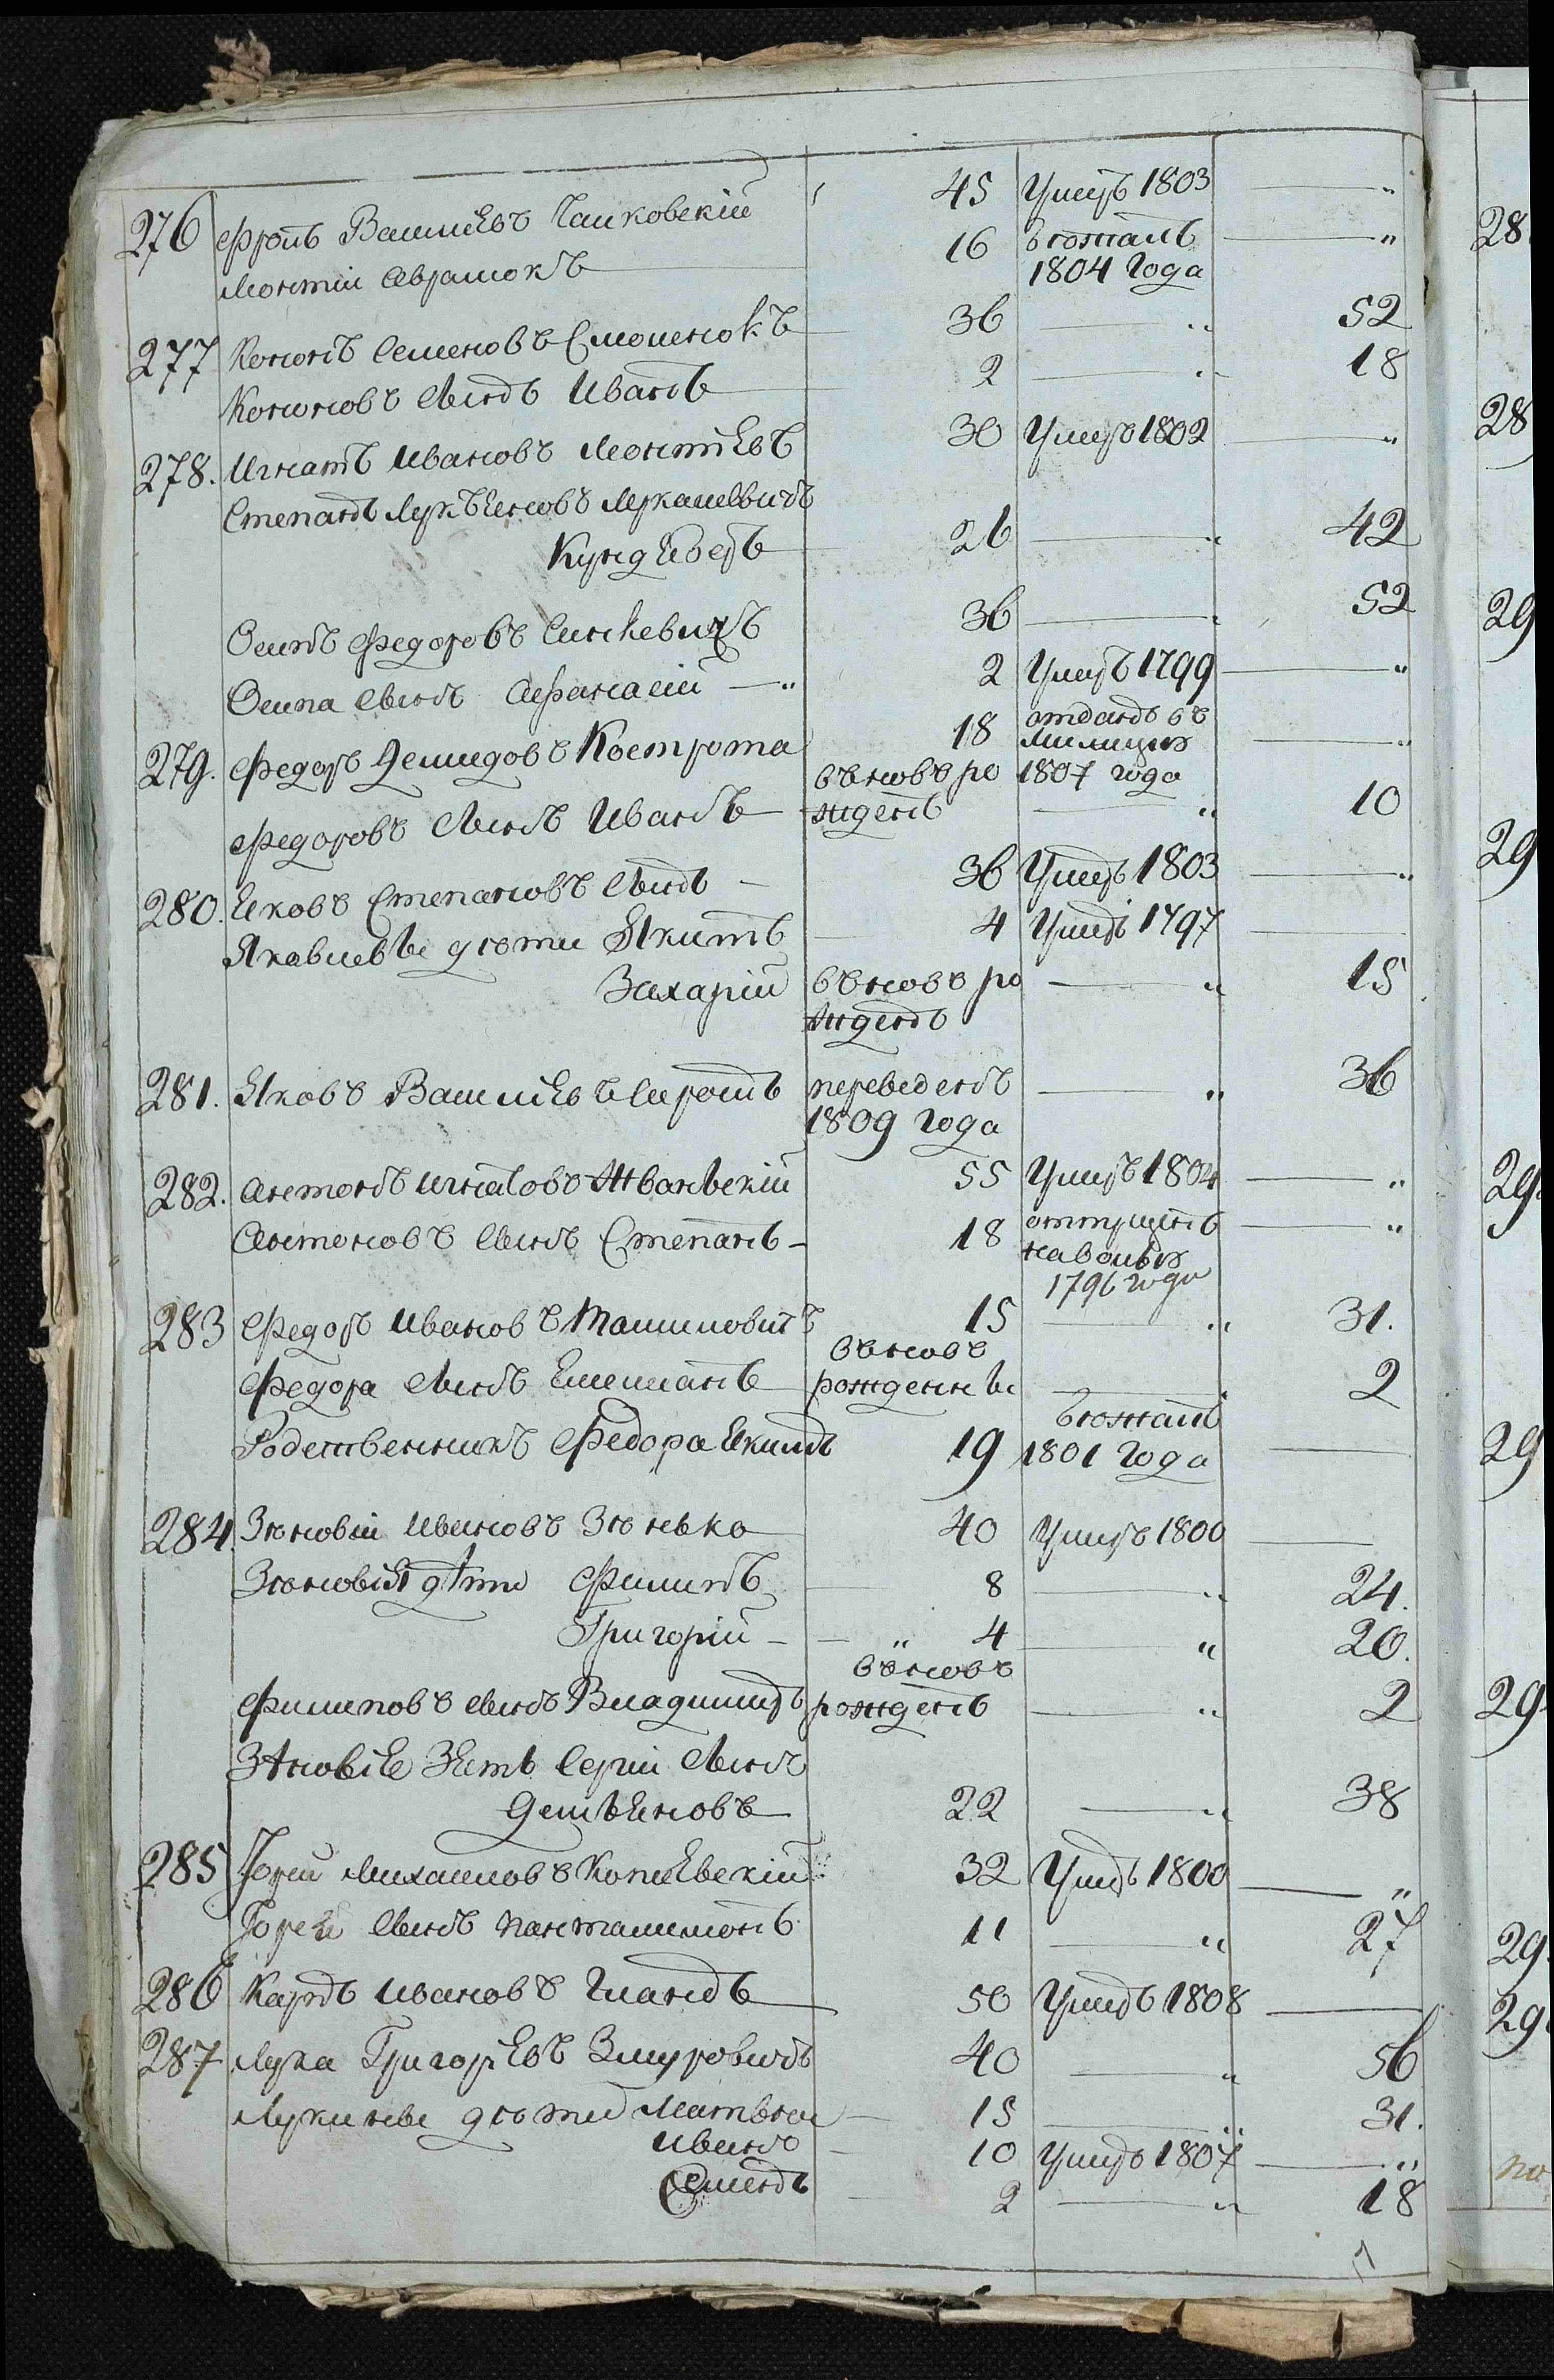 276 Фролъ Василіевъ Чайковскій 45 Умеръ 1803 — "
Леонтій Авраменокъ 16 бежалъ — "
1804 года
277 Кононъ Семеновъ Смоленокъ 36 — " 52
Кононовъ Сынъ Иванъ 2 — " 18
278. Игнатъ Ивановъ Леонтіевъ 30 Умеръ 1802 — "
Степанъ Лукъяновъ Лукашевичъ
26 — " 42
Осипъ Федоровъ Синкевичъ 36 — " 52
Осипа Сынъ Афанасій — " 2 Умеръ 1799 — "
279. Федоръ Демидовъ Кострома 18 отданъ въ — "
Милицію
вновь ро 1807 года
Федоровъ Сынъ Иванъ жденъ — " 10
280. Яковъ Степановъ Сынъ — 36 Умеръ 1803 — "
Якавлевы дѣти Якимъ 4 Умеръ 1797 —
Захарій вновь ро — " 15
жденъ
281. Яковъ Василіевъ переведенъ — " 36
1809 года
282. Антонъ Игнатовъ Жванвскій 55 Умеръ 1804 — "
Антоновъ Сынъ Степанъ — 18 отпущенъ — "
на волю
1796 года
283 Федоръ Ивановъ 15 — " 31.
вновь
Федора Сынъ Емельянъ рожденны — 2
Родственникъ Федора Якимъ 19 бежалъ
1801 года —
284. Зѣновій Ивановъ Зѣнько 40 Умеръ 1800 —
Зѣновія дѣти Филипъ 8 — " 24.
Григорій — " 4 — " 20.
вновь
Филиповъ Сынъ Владимиръ рожденъ — " 2
Зѣновіе Зять Сергій Сынъ
Демъяновъ 22 — " 38
285 Юрій Михайловъ Копіевскій 32 Умеръ 1800 — "
Юрея Сынъ Панталимонъ 11 — " 27
286 Карпъ Ивановъ 50 Умеръ 1808 —
287 Лука Григоріевъ Змуровичъ 40 — " 56
Лукины дѣти Матвей — 15 — " 31.
Иванъ — 10 Умеръ 1807 — "
Семенъ 2 — " 18
28
28
29
29
29
29
29
29
29